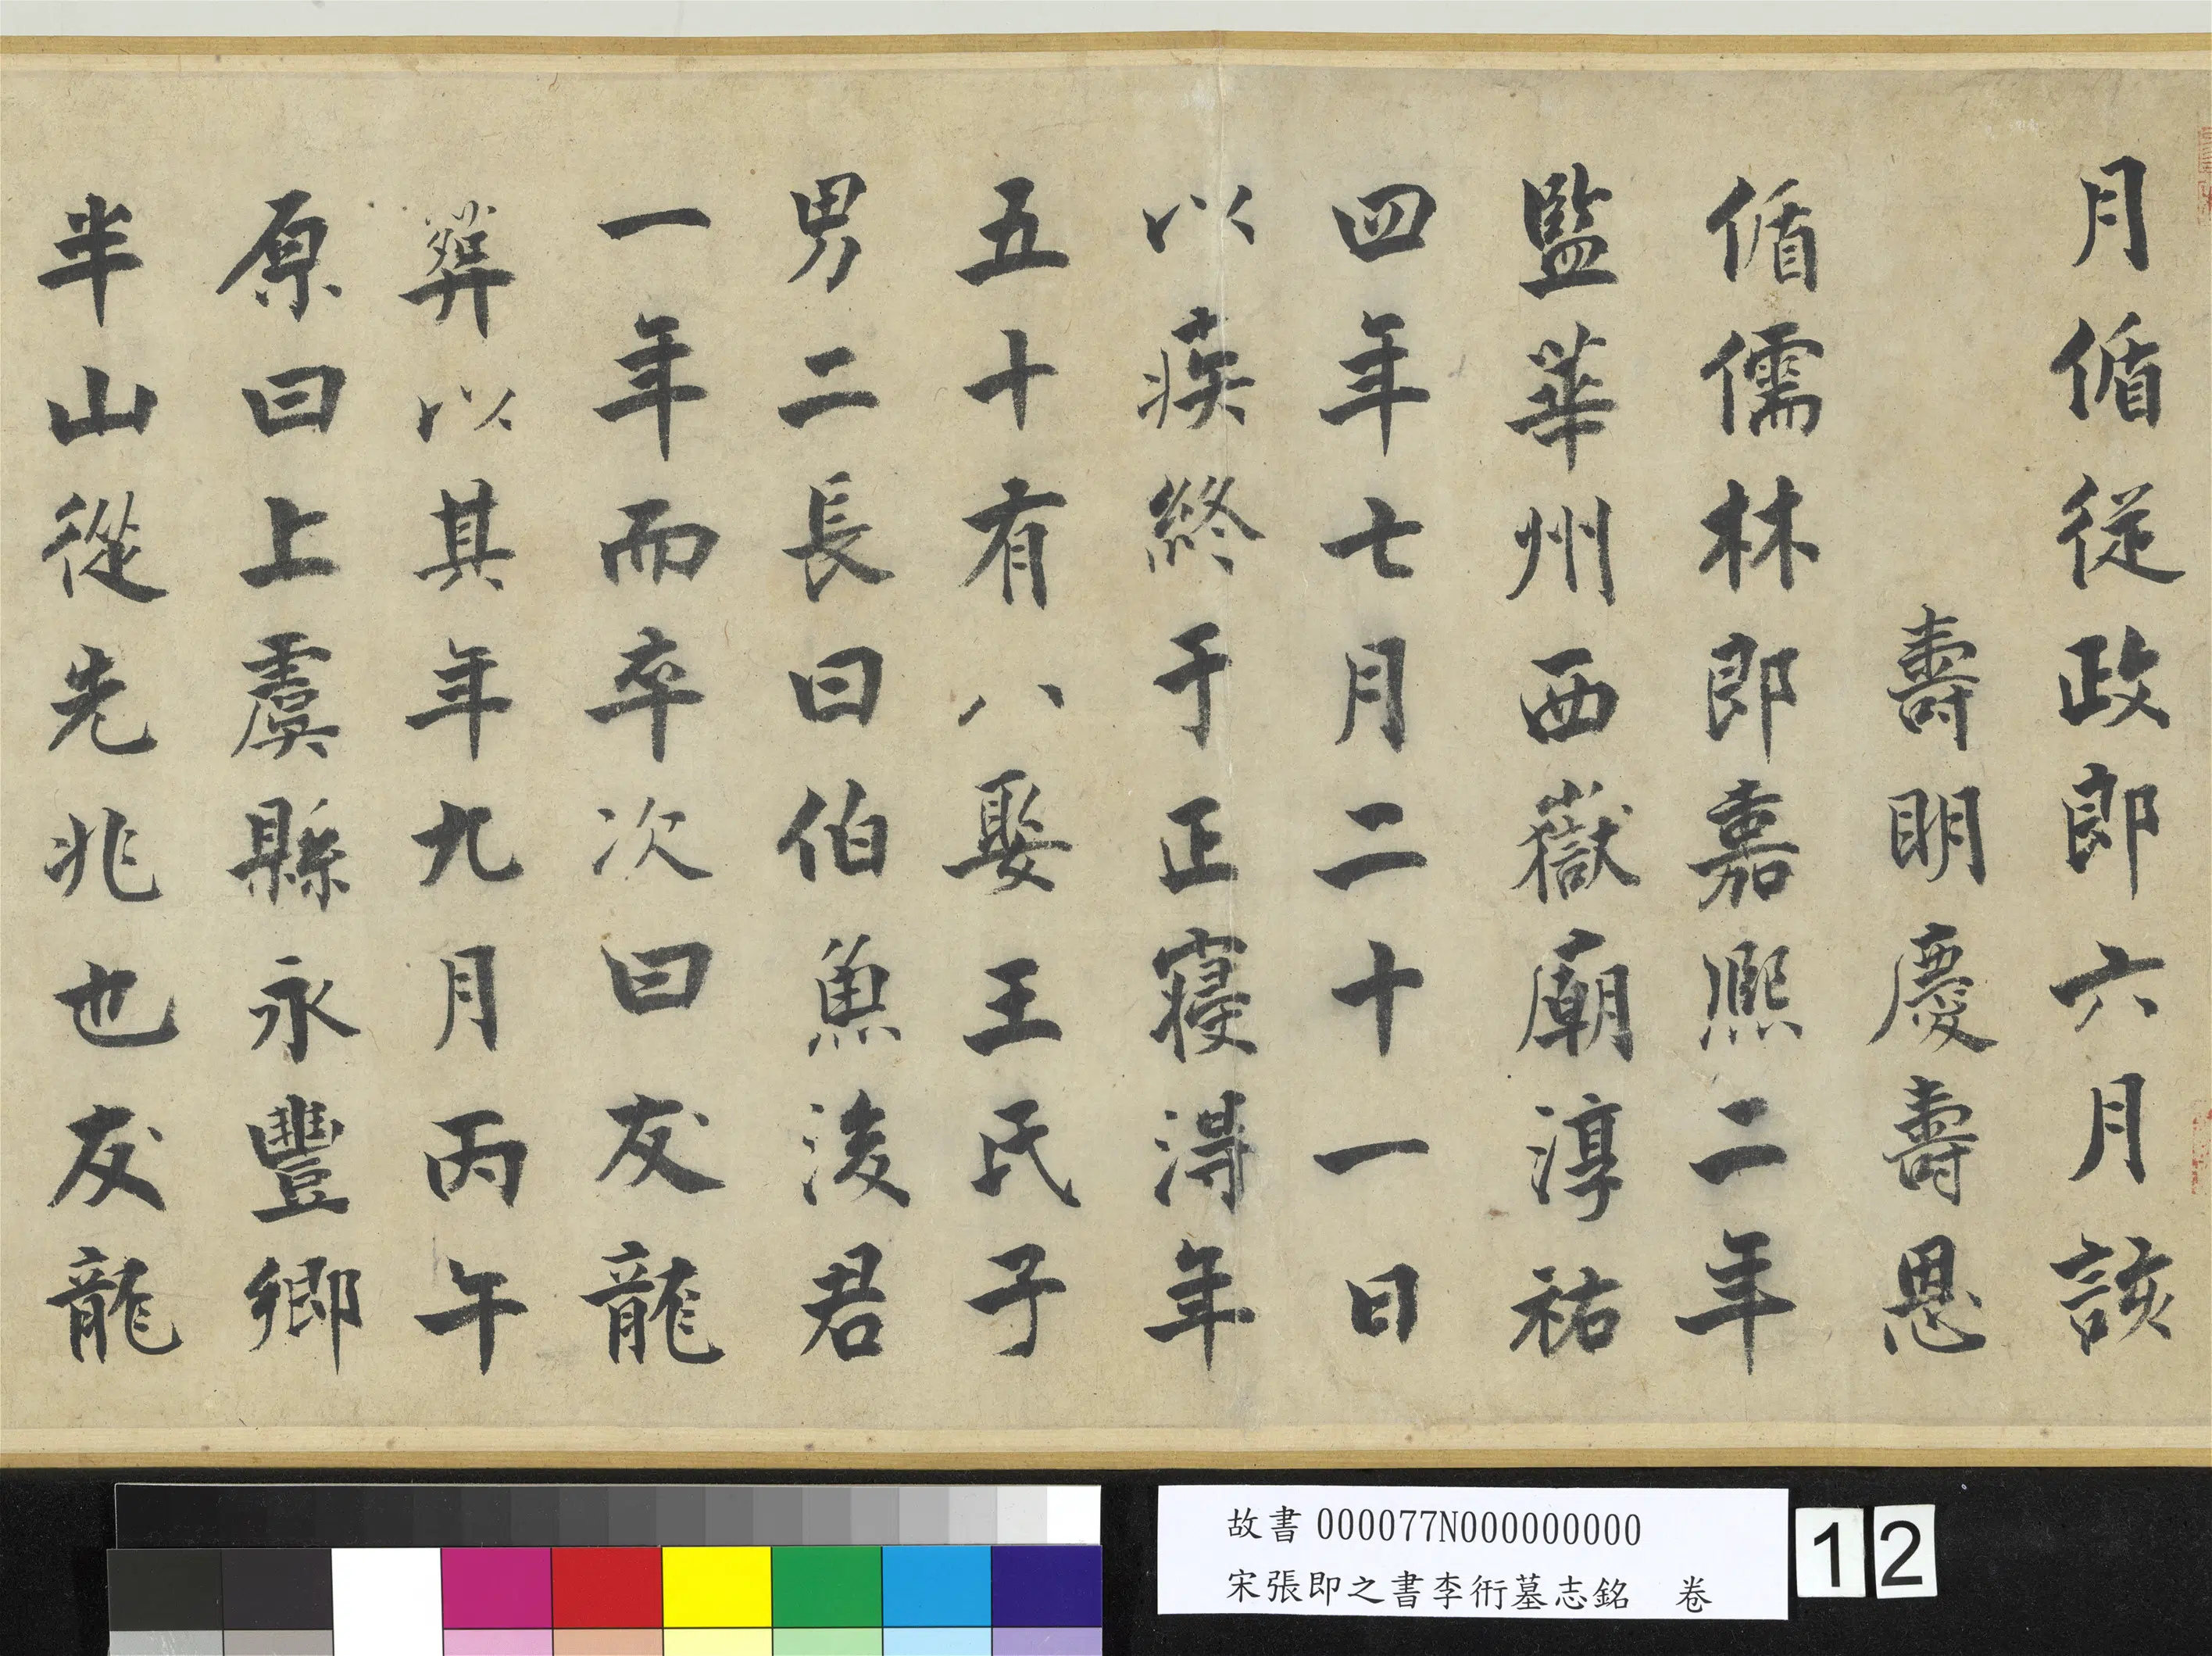 月循從政郎六月該
壽明慶壽恩
循儒林郎嘉熙二年
監華州西嶽廟淳祐
四年七月二十一日
以疾終于正寢淂年
五十有八娶王氏子
男二長曰伯魚後君
一年而卒次曰友龍
葬以其年九月丙午
原曰上虞縣永豐鄉
半山從先兆也友龍
故書000077N000000000
宋張即之書李衎墓志銘 卷
12